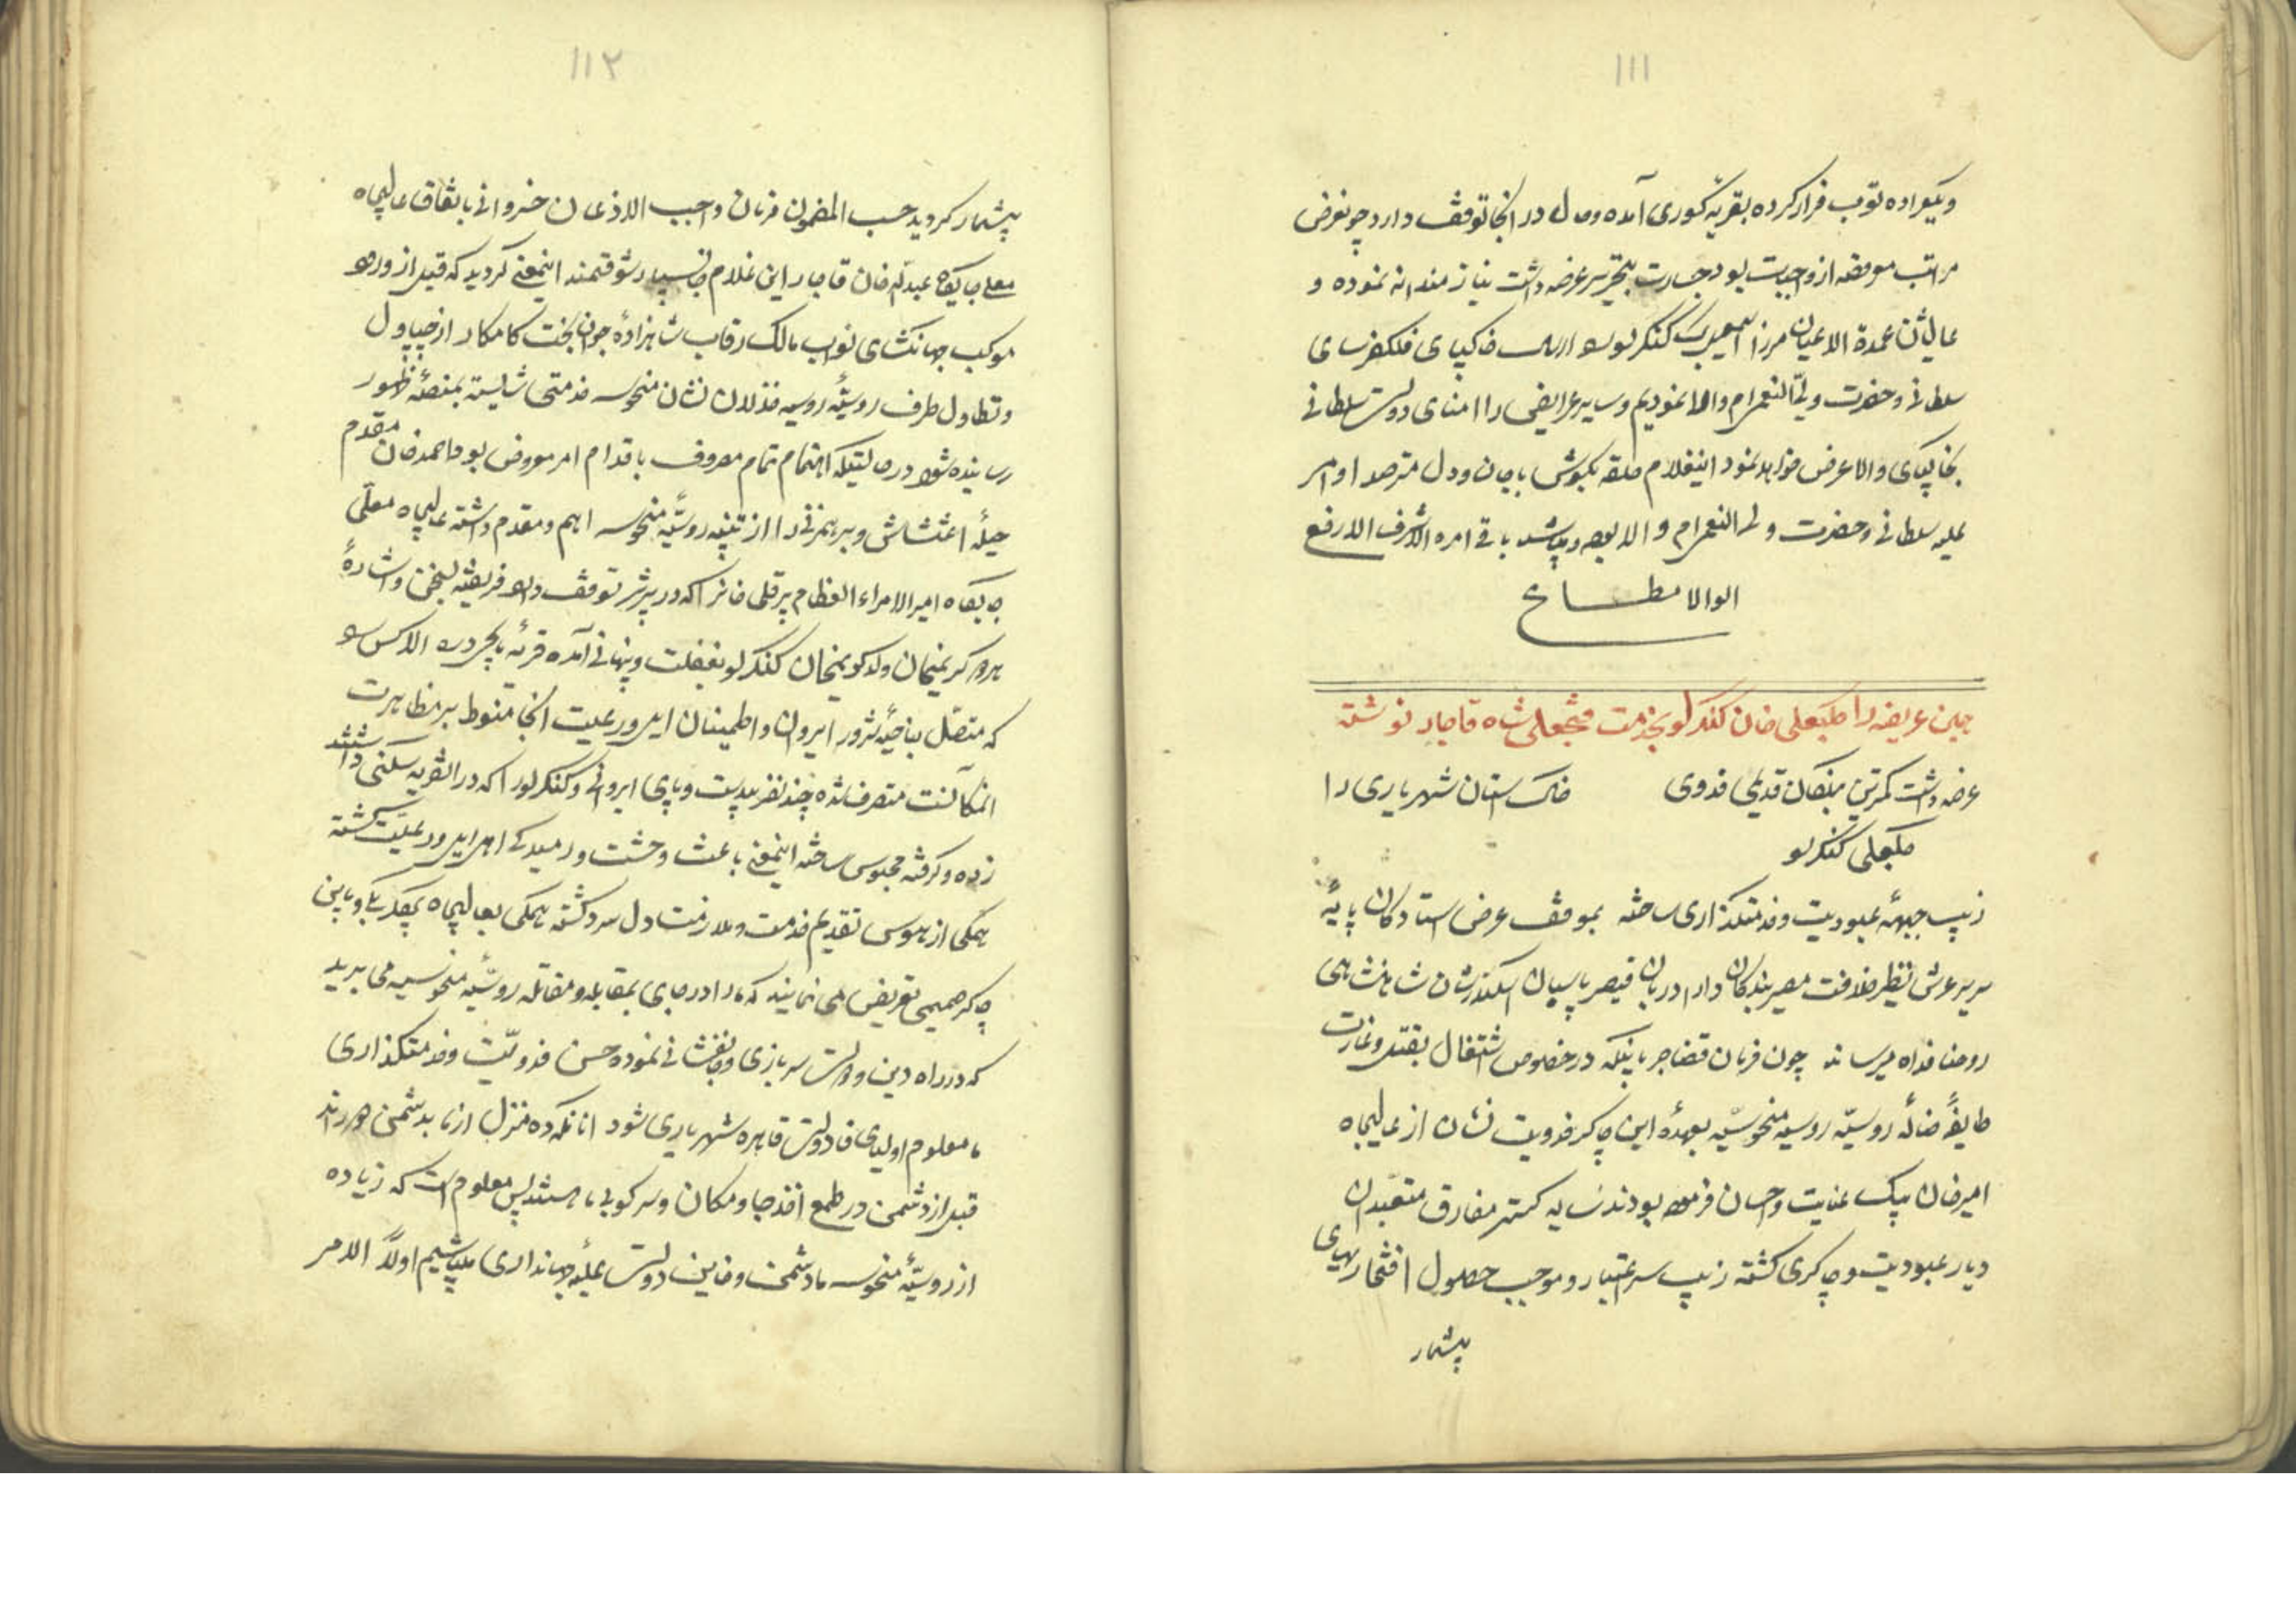 ۱۱۱
ویکعراده توپ فرار کرده بقریهٔ کوری آمده و حال در انجا توقف دارد چو نعرض
مراتب مرقومه از واجبات بود جسارت بتحریر عرضه داشت نیازمندانه نموده و
عالیشان عمدة الاعیان میرزا اسمعیل بیک کنگرلو را ارسال خاکپای فلکفرسای
سلطانی و حضرت ولی النعمرام والا نمودیم و سایر عرایض را امنای دولت سلطانی
بخاکپای والا عرض خواهد نمود اینغلام حلقه بگوش با جان و دل مترصد اوامر
علیه سلطانی و حضرت ولی النعمرام والا بوده و میباشد باقی امره الاشرف الارفع
الوالا مطاع
همین عریضه را کلبعلی خان کنگرلو بخدمت فتحعلی شاه قاجار نوشته
عرضه داشت کمترین بندگان قدیمی فدوی خاک استان شهریاری را
کلبعلی کنگرلو
زیب جبههٔ عبودیت و خدمتگذاری ساخته بموقف عرض استادگان پایهٔ
سریر عرش نظیر خلافت مصیر بندگان دارا دربان قیصر پاسبان اسکندرشان شاهنشاهی
روحنا فداه میرساند چون فرمان قضا جریانیکه در خصوص اشتغال بقتل و غارت
طایفهٔ ضالهٔ روسیّه روسیه منحوسیّه بعهدهٔ این چاکر فدویت نشان از عالیجاه
امیرخان بیک عنایت و احسان فرموده بودند سایه گستر مفارق متعبدان
دیار عبودیت و چاکری گشته زیب سر اعتبار و موجب حصول افتخار بهای
بیشمار
۱۱۲
بیشمار گردید حسب المضمون فرمان واجب الاذعان خسروانی باتفاق عالیجاه
معلی جایگاه عبدالله خان قاجار این غلام جانسپار شوقتمند اینمعنی گردید که قبل از ورود
موکب جهانگشای نواب مالک رقاب شاهزادهٔ جوان بخت کامکار از چپاول
و تطاول طرف روسیّهٔ روسیه خذلان نشان منحوسه خدمتی شایسته بمنصهٔ ظهور
رسانیده شود در حالتیکه اهتمام تمام مصروف باقدام امر معروض بود احمدخان مقدم
حیلهٔ اغتشاش و برهمزنی را از تنبیه روسیّهٔ منحوسه اهم و مقدم داشته عالیجاه معلّی
جایگاه امیر الامراء العظام پیرقلی خانرا که در شرور توقف دارد فریفته بسخن و اشارهٔ
کریمخان ولد کریمخان کنگرلو بغفلت و پنهانی آمده قریهٔ
که متصل بناحیهٔ شرور ایروان و اطمینان ایل و رعیت انجا منوط بر مظاهرت
انمکانست متصرف شده چند نفر بیدست و پای ایروانی و کنگرلو را که در انقریه سکنی داشتند
زده و گرفته محبوس ساخته اینمعنی باعث وحشت و رمیدگی اهل ایل و رعیّت گشته
همگی از هوس تقدیم خدمت و ملازمت دل سرد گشته همگی بعالیجاه
چاکر صمیمی تعریض می نمایند که ما را در جای بمقابله و مقاتله روسیّهٔ منحوسیه می برید
که در راه دین و دولت سربازی و جانفشانی نموده حسن فدویّت و خدمتگذاری
ما معلوم اولیای دولت قاهره شهریاری شود انانکه ده منزل از ما بدشمن
قبل از دشمن در طمع اخذ جا و مکان و سرکوبی ما هستند پس معلوم است که زیاده
از روسیّهٔ منحوسه ما دشمن و خاین دولت علیّهٔ جهانداری میباشیم اولاً الامر